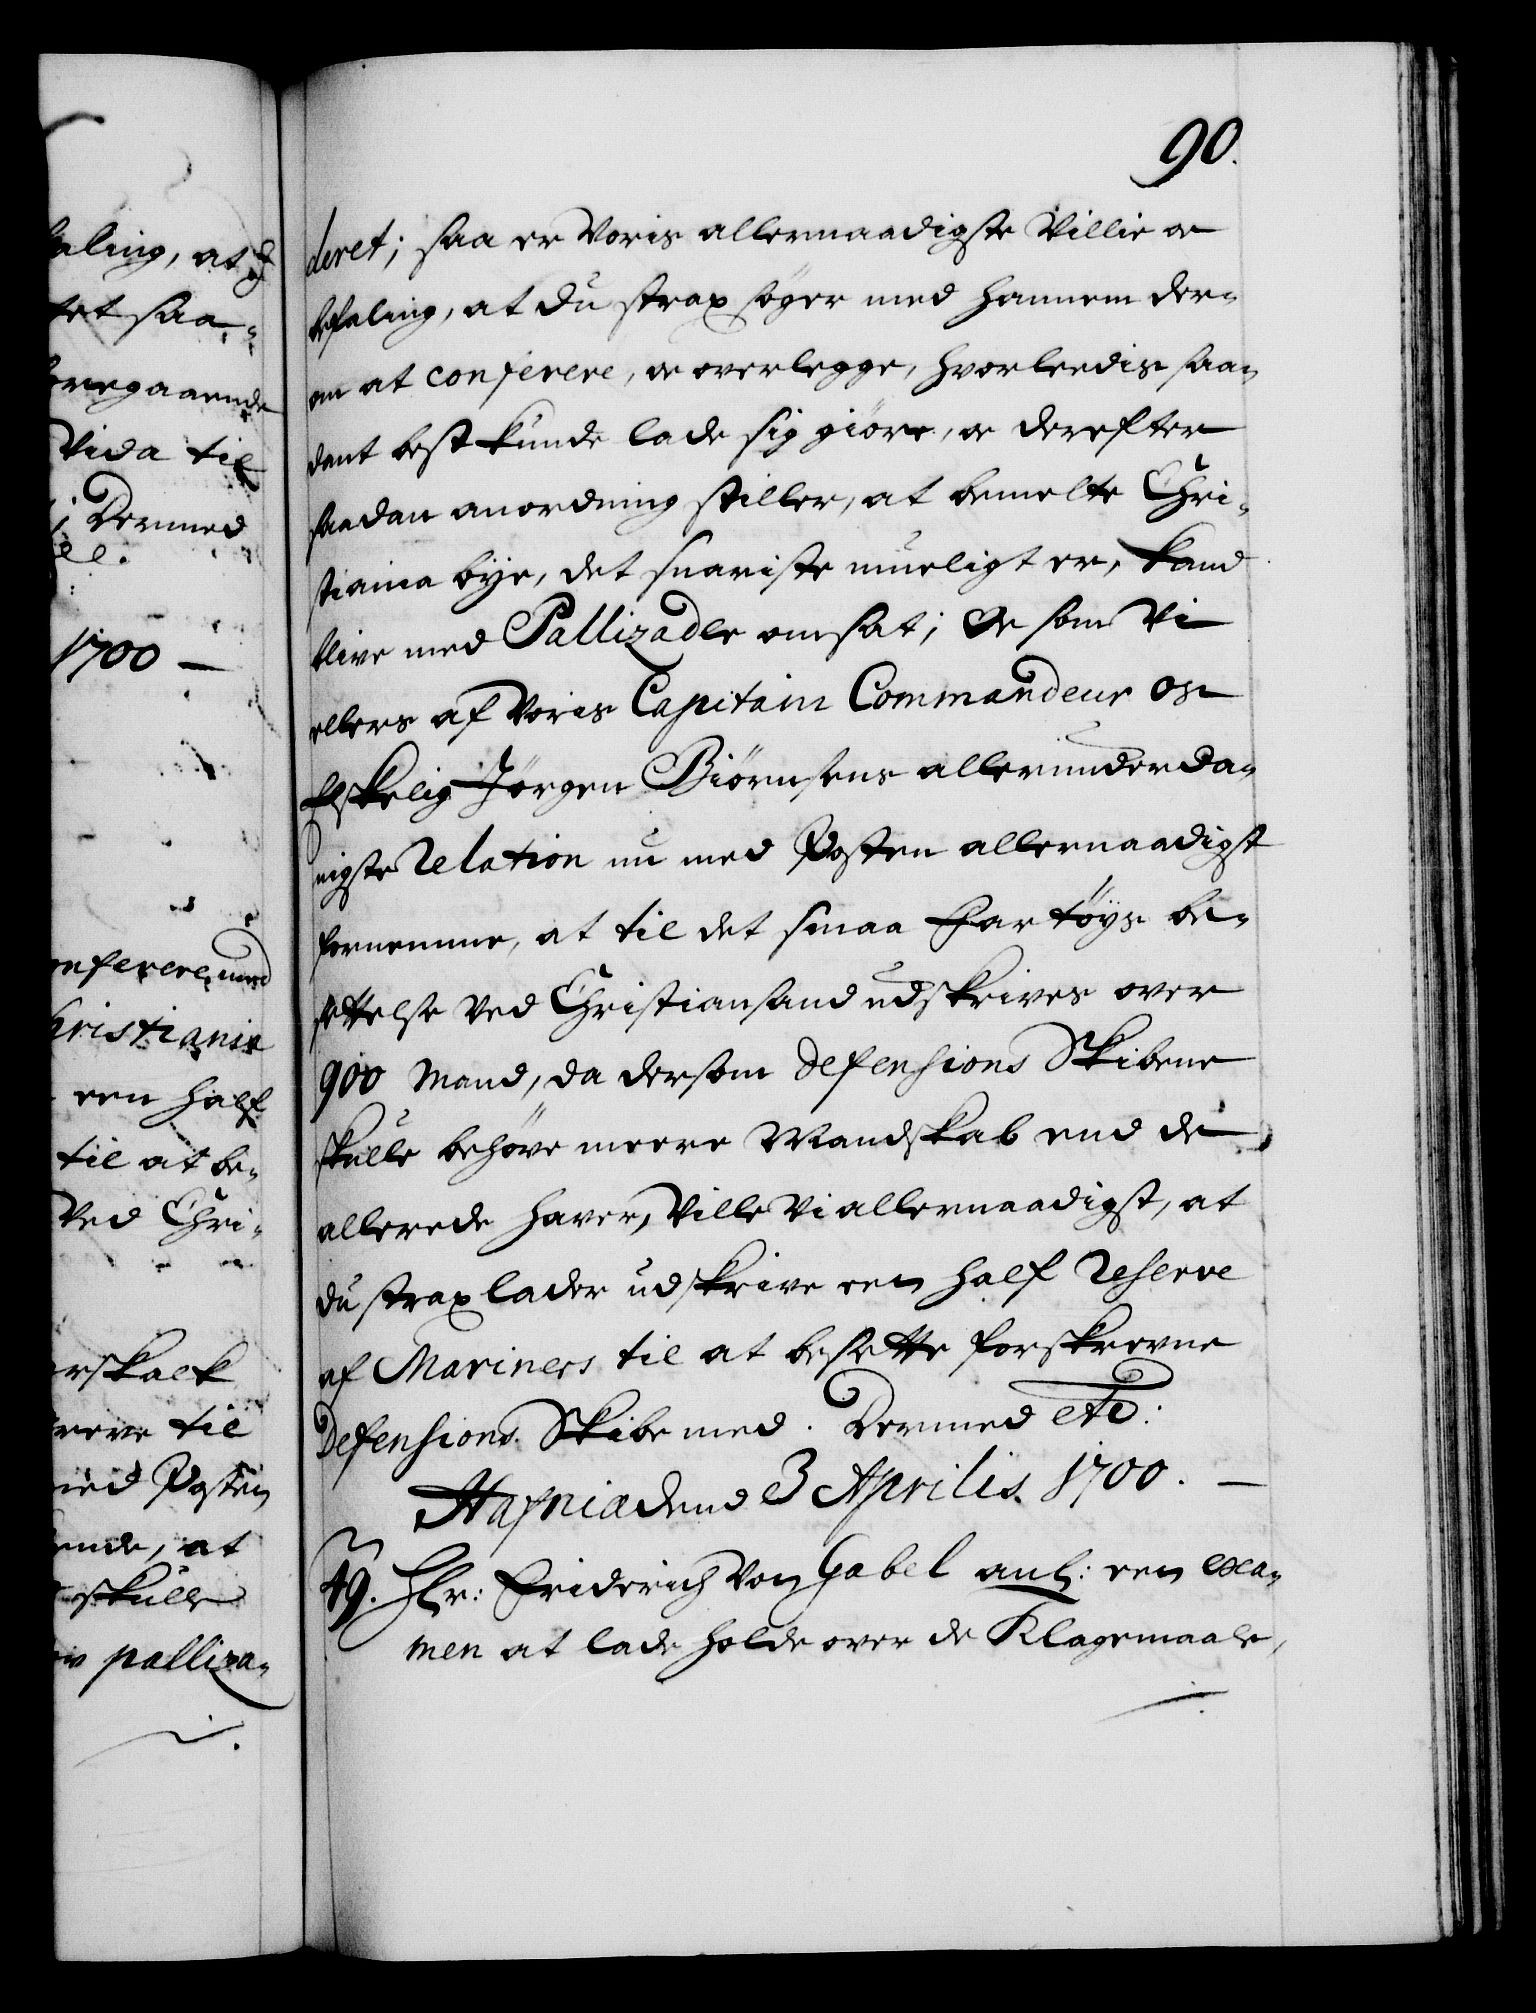 90.
deret; saa er Voris allernaadigste Villie oc
befaling, at du strax søger med hannem der-
om at conferere, oc overlegge, hvorleedis saa-
dant best kunde lade sig giöre, oc derefter
saadan anordning stiller, at bemelte Chri-
stiania bÿe, det snariste mueligt er, kand
blive med Pallizader omsat; Oc som Vi
ellers af Voris Capitain Commandeur Os
Elskelig Jörgen Biörnsens allerunderda-
nigste Relation nu med Posten allernaadigst
fornemme, at til det smaa Fartöÿs be-
settelse ved Christiansand udskrives over
900 Mand, da dersom Defensions Skibene
skulle behöve meere Mandskab end de
allerede haver, Ville Vi allernaadigst, at
du strax lader udskrive een half Reserve
af Mariners til at besette forskrevne
Defensions Skibe med. Dermed etc:
Hafniæ dend 3 Aprilis 1700. —
49. Hr: Friderich Von Gabel anl: een exa-
men at lade holde over de Klagemaale,
aling, at
tet saa-
oregaaende
Vida til
Dermed
1700 —
onferere med
hristiania
een half
til at be-
ved Chri-
rskalk
reve til
med Posten
ende, at
skulle
palliza-